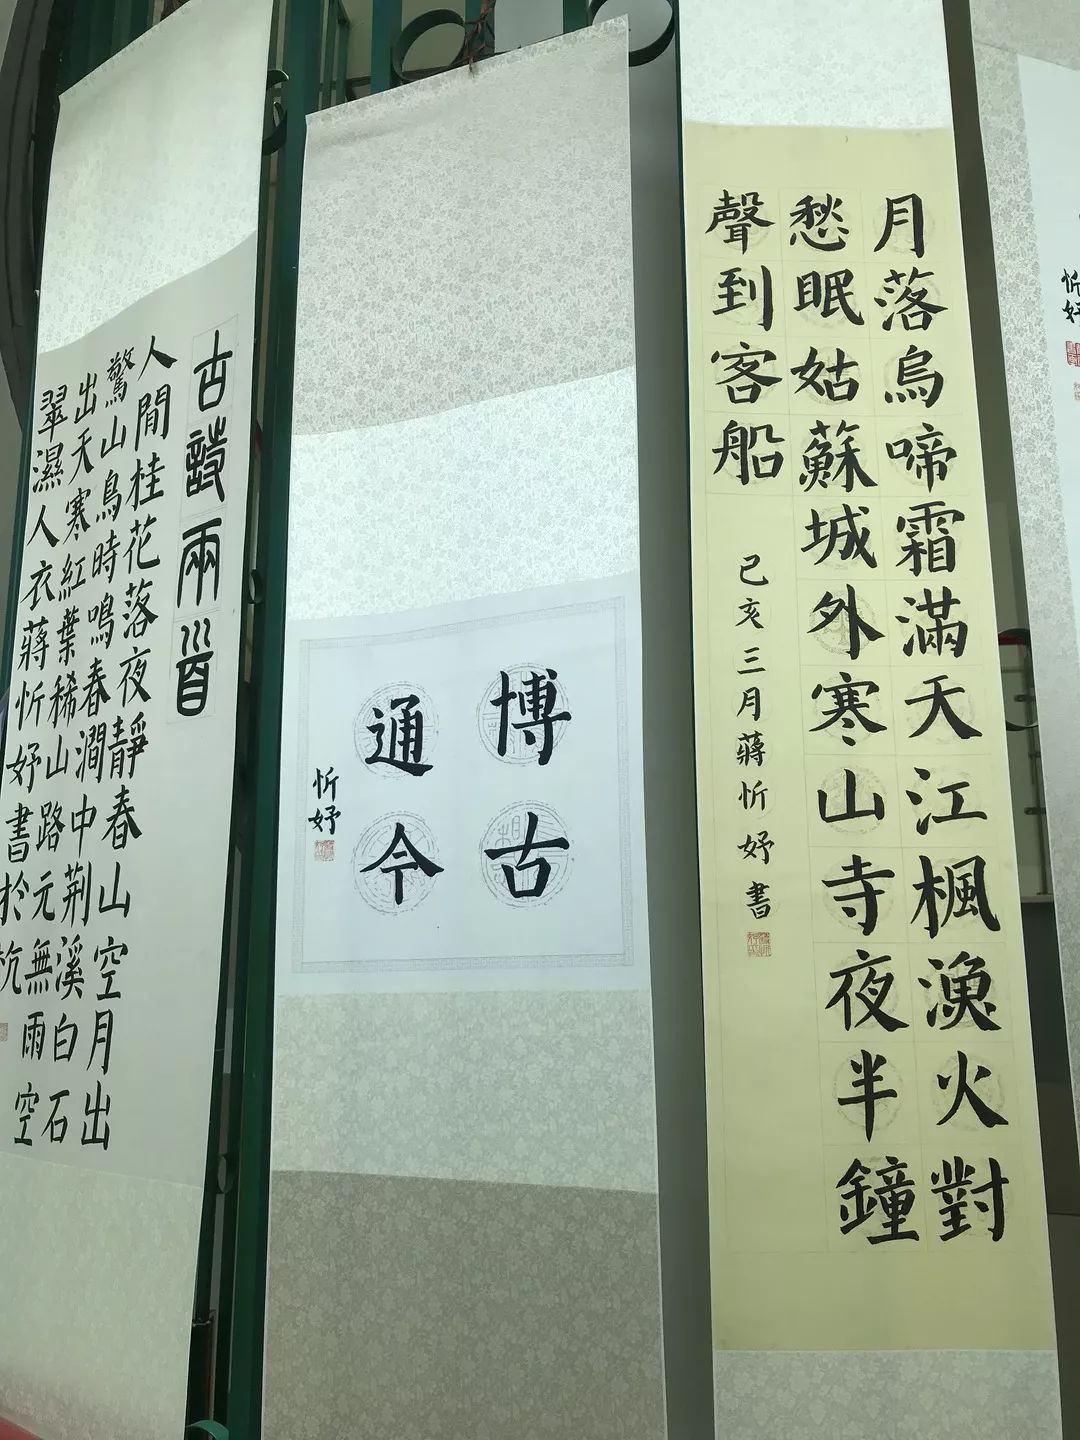 忻妤
月落烏啼霜滿天江楓漁火對
愁眠姑蘇城外寒山寺夜半鐘
聲到客船
己亥三月蔣忻妤書
博古
通今
忻妤
古詩兩首
人閒桂花落夜靜春山空月出
驚山鳥時鳴春澗中荊溪白石
出天寒紅葉稀山路元無雨空
翠濕人衣蔣忻妤書於